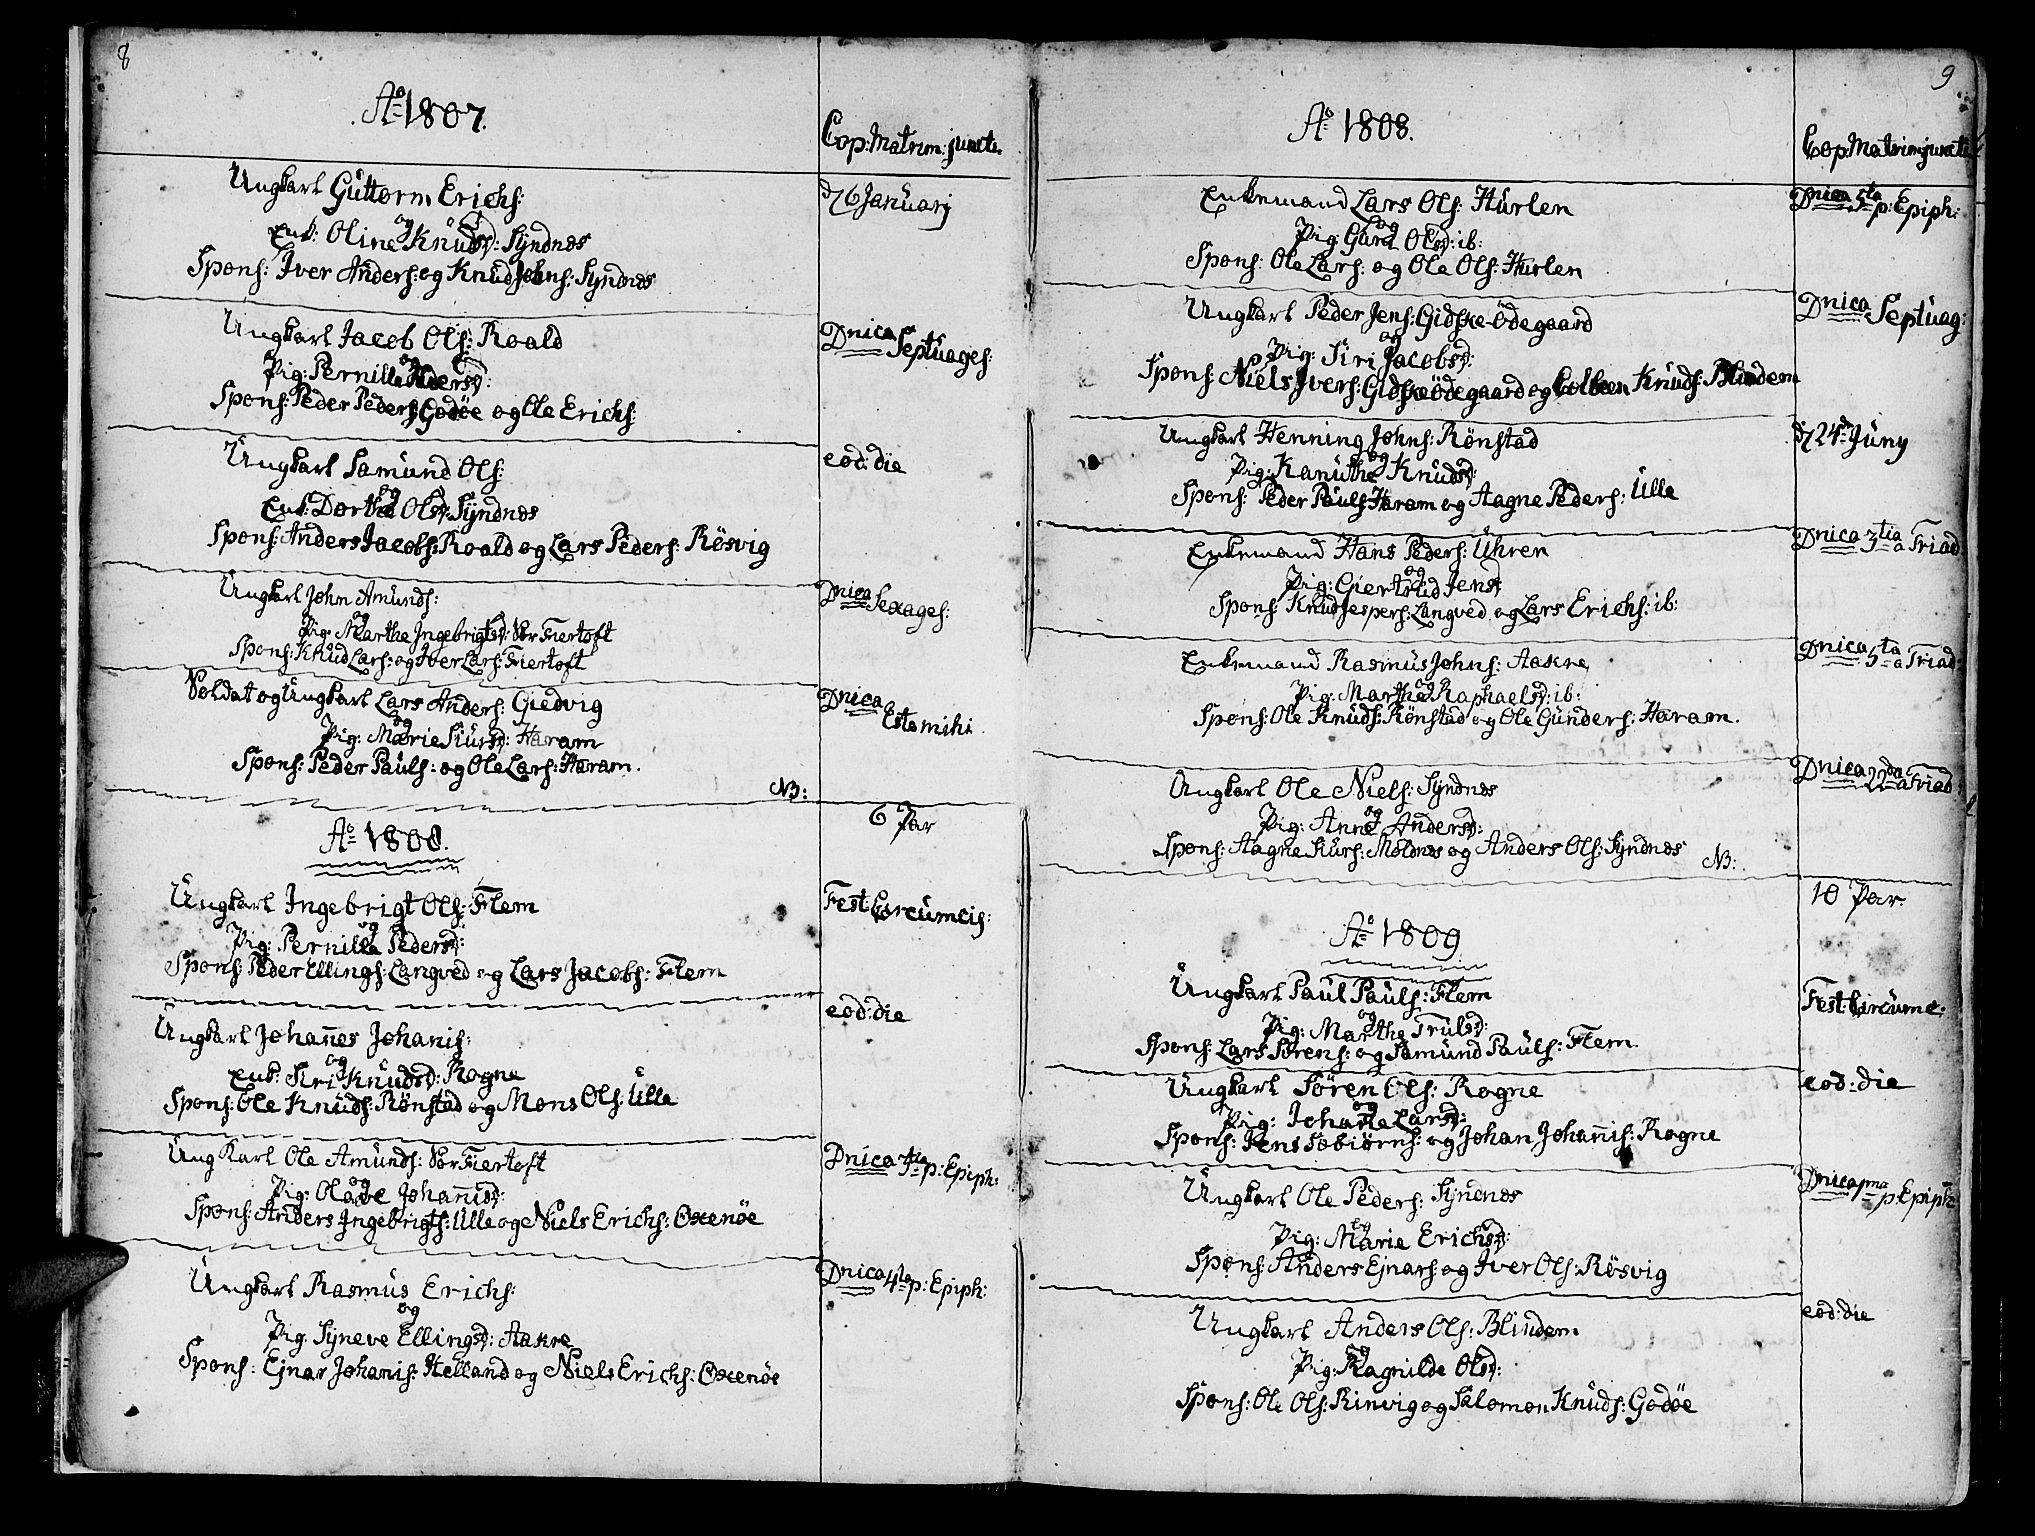 8
Aº 1807.
Cop: Matrim: juncti.
Ungkarl Guttorm Erichs:
og
Enk: Oline Knudsd: Syndnes
Spons: Iver Anders: og Knud Johns: Syndnes
d 6 Januarj
Ungkarl Jacob Ols: Roald
og
Pig: Pernille Pedersd:
Spons: Peder Peders: Godøe og Ole Erichs:
Dnica Septuages:
Ungkarl Samund Ols:
og
Enk: Dorthe Olsd: Syndnes
Spons: Anders Jacobs: Roald og Lars Peders: Rösvig
eod: die
Ungkarl John Amunds:
og
Pig: Marthe Ingebrigtsd: Sør Fiertoft
Spons: Knud Lars: og Iver Lars: Fiertoft
Dnica Sexages:
Soldat og Ungkarl Lars Anders: Giedvig
og
Pig: Marie Siursd: Haram
Spons: Peder Pauls: og Ole Lars: Haram.
Dnica Estomihi
NB:
6 Par
Aº 1808.
Ungkarl Ingebrigt Ols: Flem
og
Pig: Pernille Pedersd:
Spons: Peder Ellings: Langved og Lars Jacobs: Flem
Fest: Circumcis:
Ungkarl Johañes Johanis:
og
Enk: Siri Knudsd: Rogne
Spons: Ole Knuds: Rönstad og Mons Ols: Ulle
eod: die
Ungkarl Ole Amunds: Sør Fiertoft
og
Pig: Olave Johañisd:
Spons: Anders Ingebrigts: Ulle og Niels Erichs: Oxenøe
Dnica 4ta p: Epiph:
Ungkarl Rasmus Erichs:
og
Pig: Syneve Ellingsd: Aakre
Spons: Ejnar Johanis: Helland og Niels Erichs: Oxenøe
Dnica 4ta p: Epiph:
9
Aº 1808.
Cop: Matrim: juncti
Enkemand Lars Ols: Hurlen
og
Pig: Guri Olsd: ib:
Spons: Ole Lars: og Ole Ols: Hurlen
Dnica 5ta p: Epiph:
Ungkarl Peder Jens: Gidske-Ödegaard
og
Pig: Siri Jacobsd:
Spons: Niels Ivers: Gidskeödegaard og Colbeen Knuds: Blindem
Dnica Septuag:
Ungkarl Henning Johns: Rönstad
og
Pig: Kanuthe Knudsd:
Spons: Peder Pauls: Haram og Aagne Peders: Ulle
d 24d Juny
Enkemand Hans Peders: Uhren
og
Pig: Giertrud Jensd
Spons: Knud Jespers: Langved og Lars Erichs: ib:
Dnica 3tia a Triad
Enkemand Rasmus Johns: Aakre
og
Pig: Marthe Raphaelsd: ib:
Spons: Ole Knuds: Rönstad og Ole Gunders: Haram.
Dnica 5ta a Triad:
Ungkarl Ole Niels: Syndnes
og
Pig: Anne Andersd:
Spons: Aagne Siurs: Moldnes og Anders Ols: Syndnes
Dnica 22da a Triad:
NB:
10 Par.
Aº 1809
Ungkarl Paul Pauls: Flem
og
Pig: Marthe Trulsd:
Spons: Lars Sørens: og Samund Pauls: Flem
Fest: Circumc:
Ungkarl Sören Ols: Rogne
og
Pig: Johañe Larsd:
Spons: Jens Tobiørns: og Johan Johañis: Rogne
eod: die
Ungkarl Ole Peders: Syndnes
og
Pig: Marie Erichsd:
Spons: Anders Ejnars: og Iver Ols: Rösvig
Dnica 1ma p: Epiph:
Ungkarl Anders Ols: Blindem
og
Pig: Ragnilde Olsd:
Spons: Ole Ols: Rinvig og Salomon Knuds: Godøe
eod: die